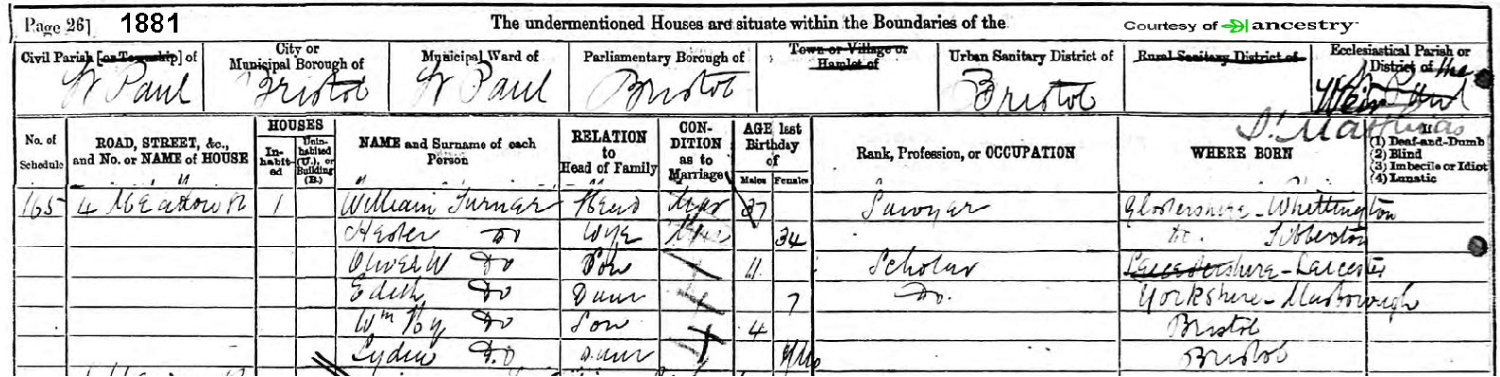 Page 26] 1881 The undermentioned Houses are situate within the Boundaries of the Courtesy of ancestry
Civil Parish [or Township] of City or Municipal Borough of Municipal Ward of Parliamentary Borough of Town or Village or Hamlet of Urban Sanitary District of Rural Sanitary District of Ecclesiastical Parish or District of the
St Paul Bristol St Paul Bristol Bristol
St Matthias
No. of Schedule ROAD, STREET, &c., and No. or NAME of HOUSE HOUSES Inhabited Uninhabited (U.), or Building (B.) NAME and Surname of each Person RELATION to Head of Family CONDITION as to Marriage AGE last Birthday of Males Females Rank, Profession, or OCCUPATION WHERE BORN (1) Deaf-and-Dumb (2) Blind (3) Imbecile or Idiot (4) Lunatic
165 4 Meadow St 1 William Turner Head Mar 37 Sawyer Glostershire - Whittington
Hester Do Wife Mar 34 Do. Tibberton
Oliver W Do Son 11 Scholar Leicestershire - Leicester
Edith Do Daur 7 Do. Yorkshire - Masborough
Wm Hy Do Son 4 Bristol
Lydia Do Daur Bristol